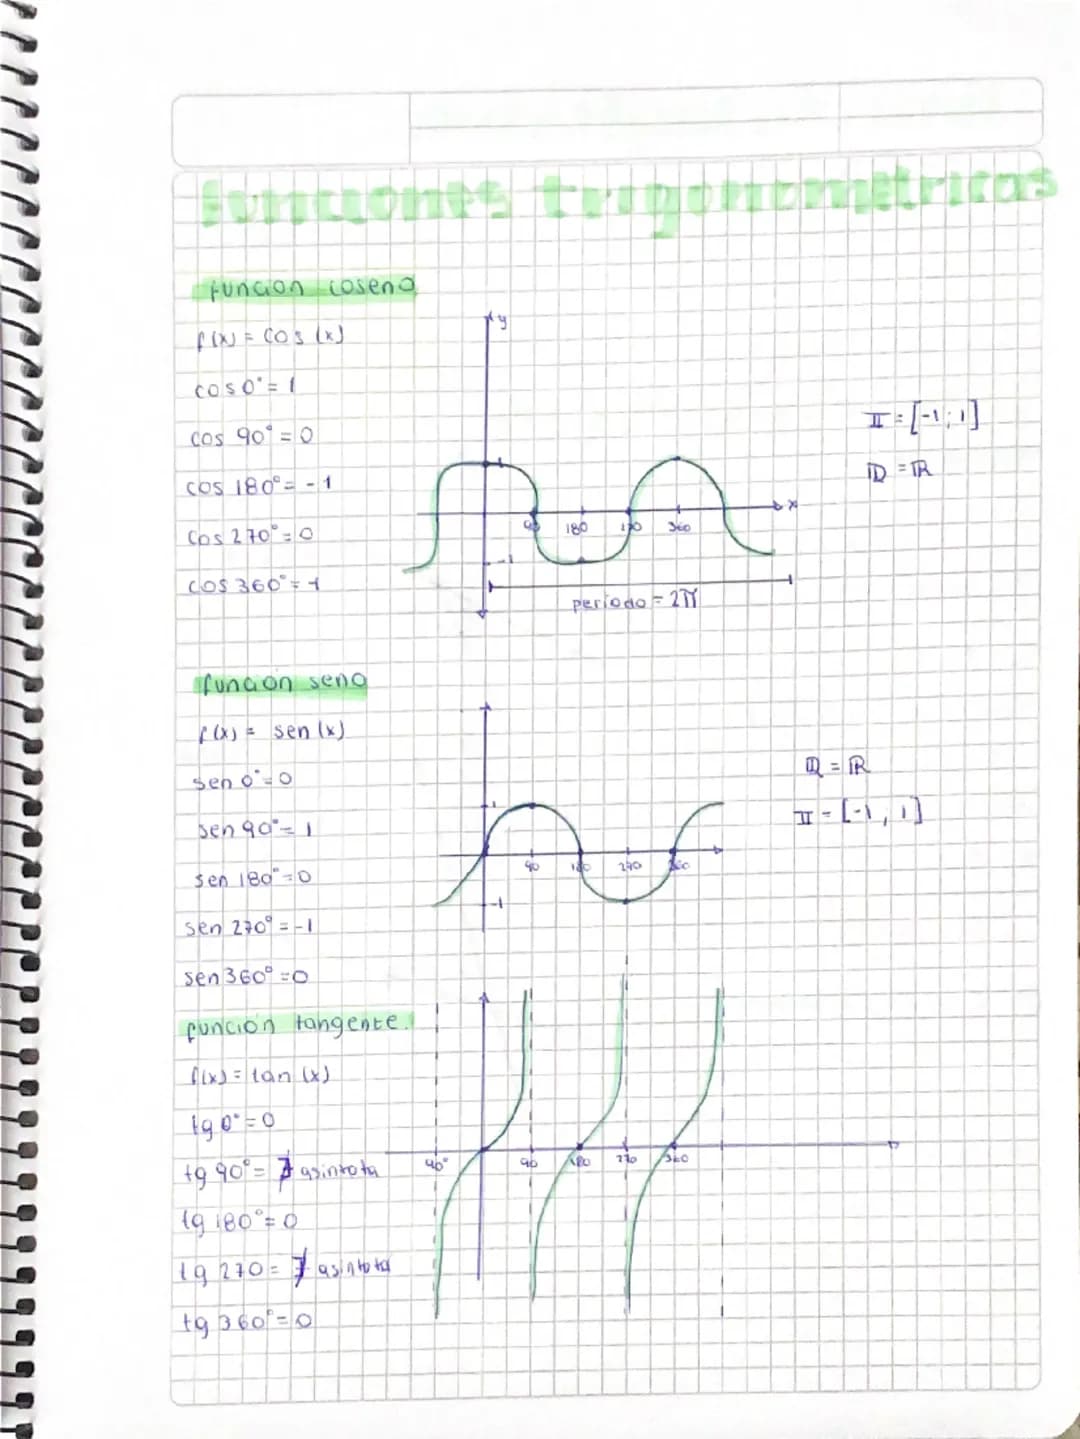 funciones trigonometricas
función coseno
f(x) = cos (x)
cos 0° = 1
cos 90° = 0
cos 180° = -1
cos 270° = 0
cos 360° = 1
y
1
90 180 270 360 x
-1
periodo = 2π
I = [-1; 1]
D = ℝ
función seno
f(x) = sen (x)
sen 0° = 0
sen 90° = 1
sen 180° = 0
sen 270° = -1
sen 360° = 0
1
90 180 270 360
-1
D = ℝ
I = [-1, 1]
función tangente.
f(x) = tan (x)
tg 0° = 0
tg 90° = ∄ asintota
tg 180° = 0
tg 270 = ∄ asintota
tg 360° = 0
90° 90 180 270 360